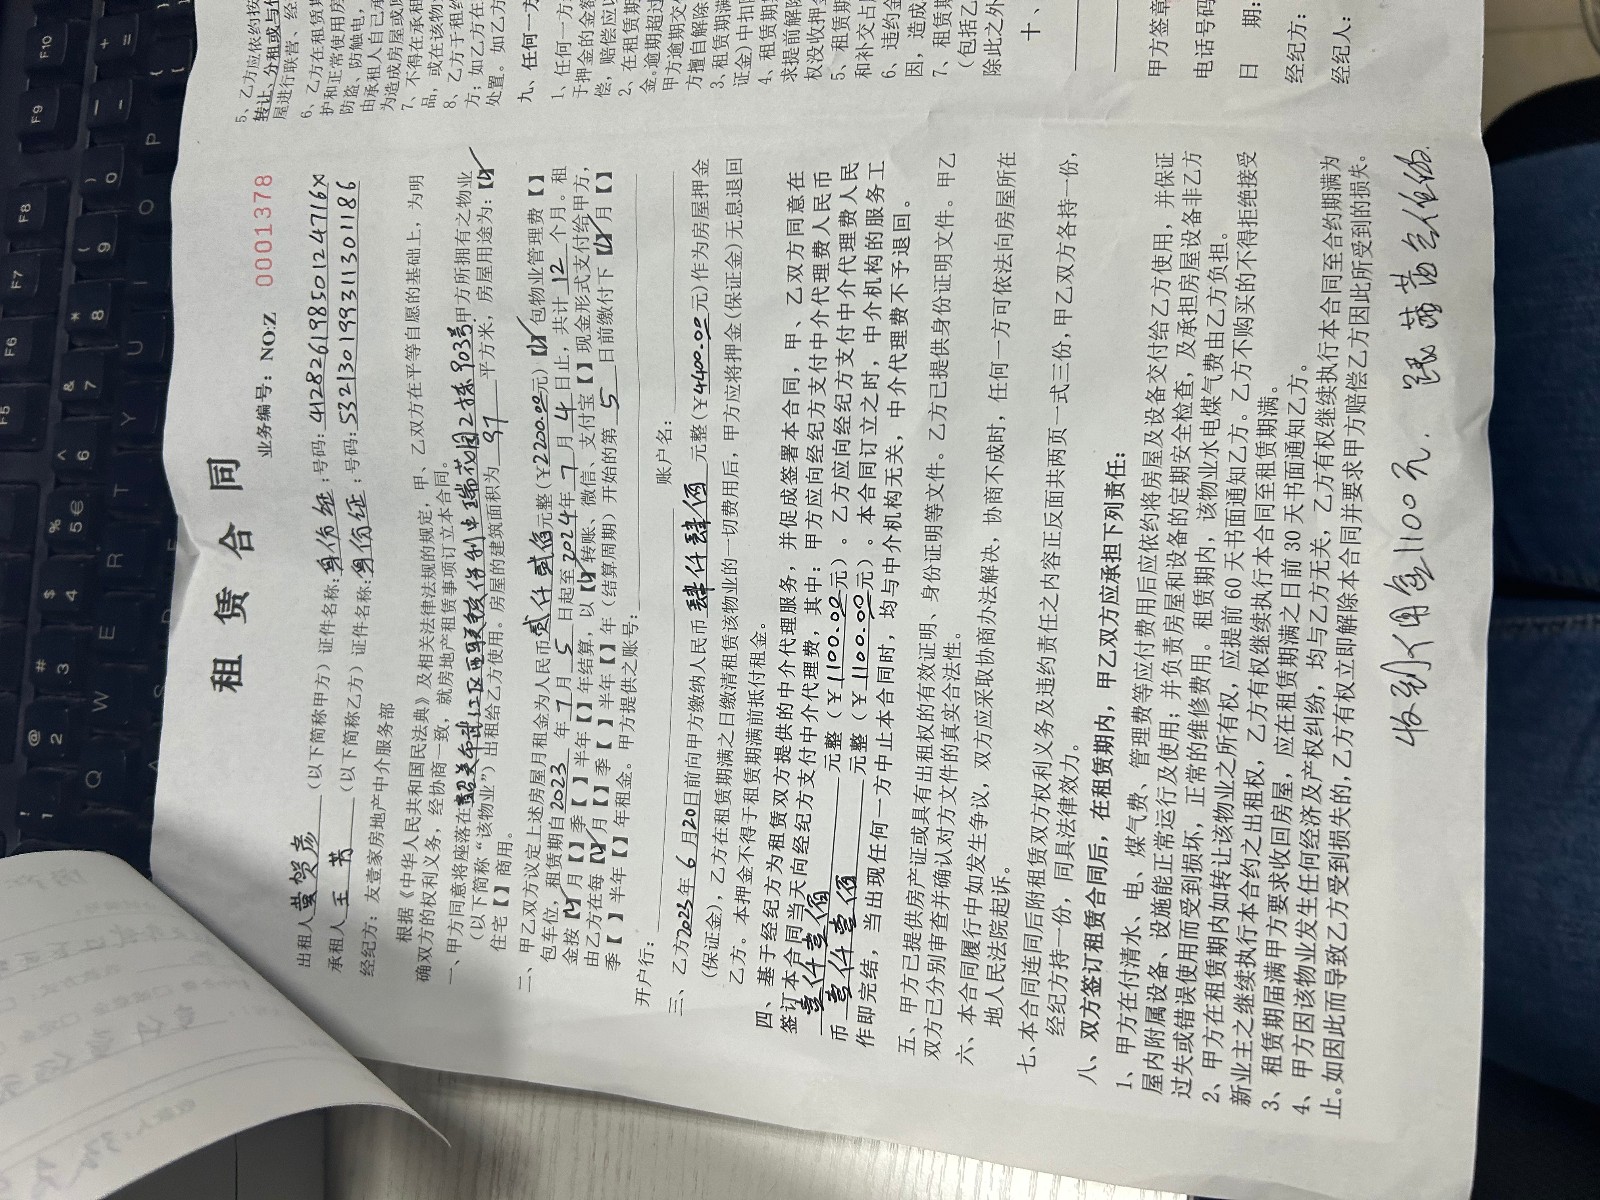 租赁合同
业务编号：NO:Z 0001378
出租人 黄贺彦 （以下简称甲方）证件名称：身份证：号码：41282619850124716X
承租人 王芳 （以下简称乙方）证件名称：身份证：号码：532130199311301186
经纪方：友壹家房地产中介服务部
根据《中华人民共和国民法典》及相关法律法规的规定，甲、乙双方在平等自愿的基础上，为明
确双方的权利义务，经协商一致，就房地产租赁事项订立本合同。
一、甲方同意将座落在韶关市武江区西联镇 花园2栋903号甲方所拥有之物业
（以下简称“该物业”）出租给乙方使用。房屋的建筑面积为 97 平方米，房屋用途为：【✓】
住宅【 】商用。
二、甲乙双方议定上述房屋月租金为人民币贰仟贰佰元整（¥2200.00元）【✓】包物业管理费【 】
包车位，租赁期自2023年7月5日起至2024年7月4日止，共计12个月。租
金按【✓】月【 】季【 】半年【 】年结算，以【✓】转账、微信、支付宝【 】现金形式支付给甲方，
由乙方在每【✓】月【 】季【 】半年【 】年（结算周期）开始的第 5 日前缴付下【✓】月【 】
季【 】半年【 】年租金。甲方提供之账号：
开户行： 账户名：
三、乙方2023年6月20日前向甲方缴纳人民币 肆仟肆佰 元整（¥4400.00元）作为房屋押金
（保证金），乙方在租赁期满之日缴清租赁该物业的一切费用后，甲方应将押金（保证金）无息退回
乙方。本押金不得于租赁期满前抵付租金。
四、基于经纪方为租赁双方提供的中介代理服务，并促成签署本合同，甲、乙双方同意在
签订本合同当天向经纪方支付中介代理费，其中：甲方应向经纪方支付中介代理费人民币
壹仟壹佰 元整（¥1100.00元）。乙方应向经纪方支付中介代理费人民
币 壹仟壹佰 元整（¥1100.00元）。本合同订立之时，中介机构的服务工
作即完结，当出现任何一方中止本合同时，均与中介机构无关，中介代理费不予退回。
五、甲方已提供房产证或具有出租权的有效证明、身份证明等文件。乙方已提供身份证明文件。甲乙
双方已分别审查并确认对方文件的真实合法性。
六、本合同履行中如发生争议，双方应采取协商办法解决，协商不成时，任何一方可依法向房屋所在
地人民法院起诉。
七、本合同连同后附租赁双方权利义务及违约责任之内容正反面共两页一式三份，甲乙双方各持一份，
经纪方持一份，同具法律效力。
八、双方签订租赁合同后，在租赁期内，甲乙双方应承担下列责任：
1、甲方在付清水、电、煤气费、管理费等应付费用后应依约将房屋及设备交付给乙方使用，并保证
屋内附属设备、设施能正常运行及使用；并负责房屋和设备的定期安全检查，及承担房屋设备非乙方
过失或错误使用而受到损坏，正常的维修费用。租赁期内，该物业水电煤气费由乙方负担。
2、甲方在租赁期内如转让该物业之所有权，应提前 60 天书面通知乙方。乙方不购买的不得拒绝接受
新业主之继续执行本合约之出租权，乙方有权继续执行本合同至租赁期满。
3、租赁期届满甲方要求收回房屋，应在租赁期满之日前 30 天书面通知乙方。
4、甲方因该物业发生任何经济及产权纠纷，均与乙方无关，乙方有权继续执行本合同至合约期满为
止。如因此而导致乙方受到损失的，乙方有权立即解除本合同并要求甲方赔偿乙方因此所受到的损失。
收到佣金1100元.
5、乙方应依约按
转让、分租或与他
屋进行联营、经
6、乙方在租赁期
护和正常使用房
防盗、防触电，
由承租人自己承
为造成房屋或防
7、不得在承租
品，或在该物业
8、乙方于租约
方；如乙方在
处置。如乙方
九、任何一方
1、任何一方
于押金的金额
偿，赔偿应以
2、在租赁期
金。逾期超过
甲方逾期交付
方擅自解除
3、租赁期满
证金）中扣除
4、租赁期
求提前解除
权没收押金
5、租赁期
和补交占用
6、违约金
因，造成
7、租赁期
（包括乙
除此之外
十、
甲方签章
电话号码
日 期：
经纪方：
经纪人：